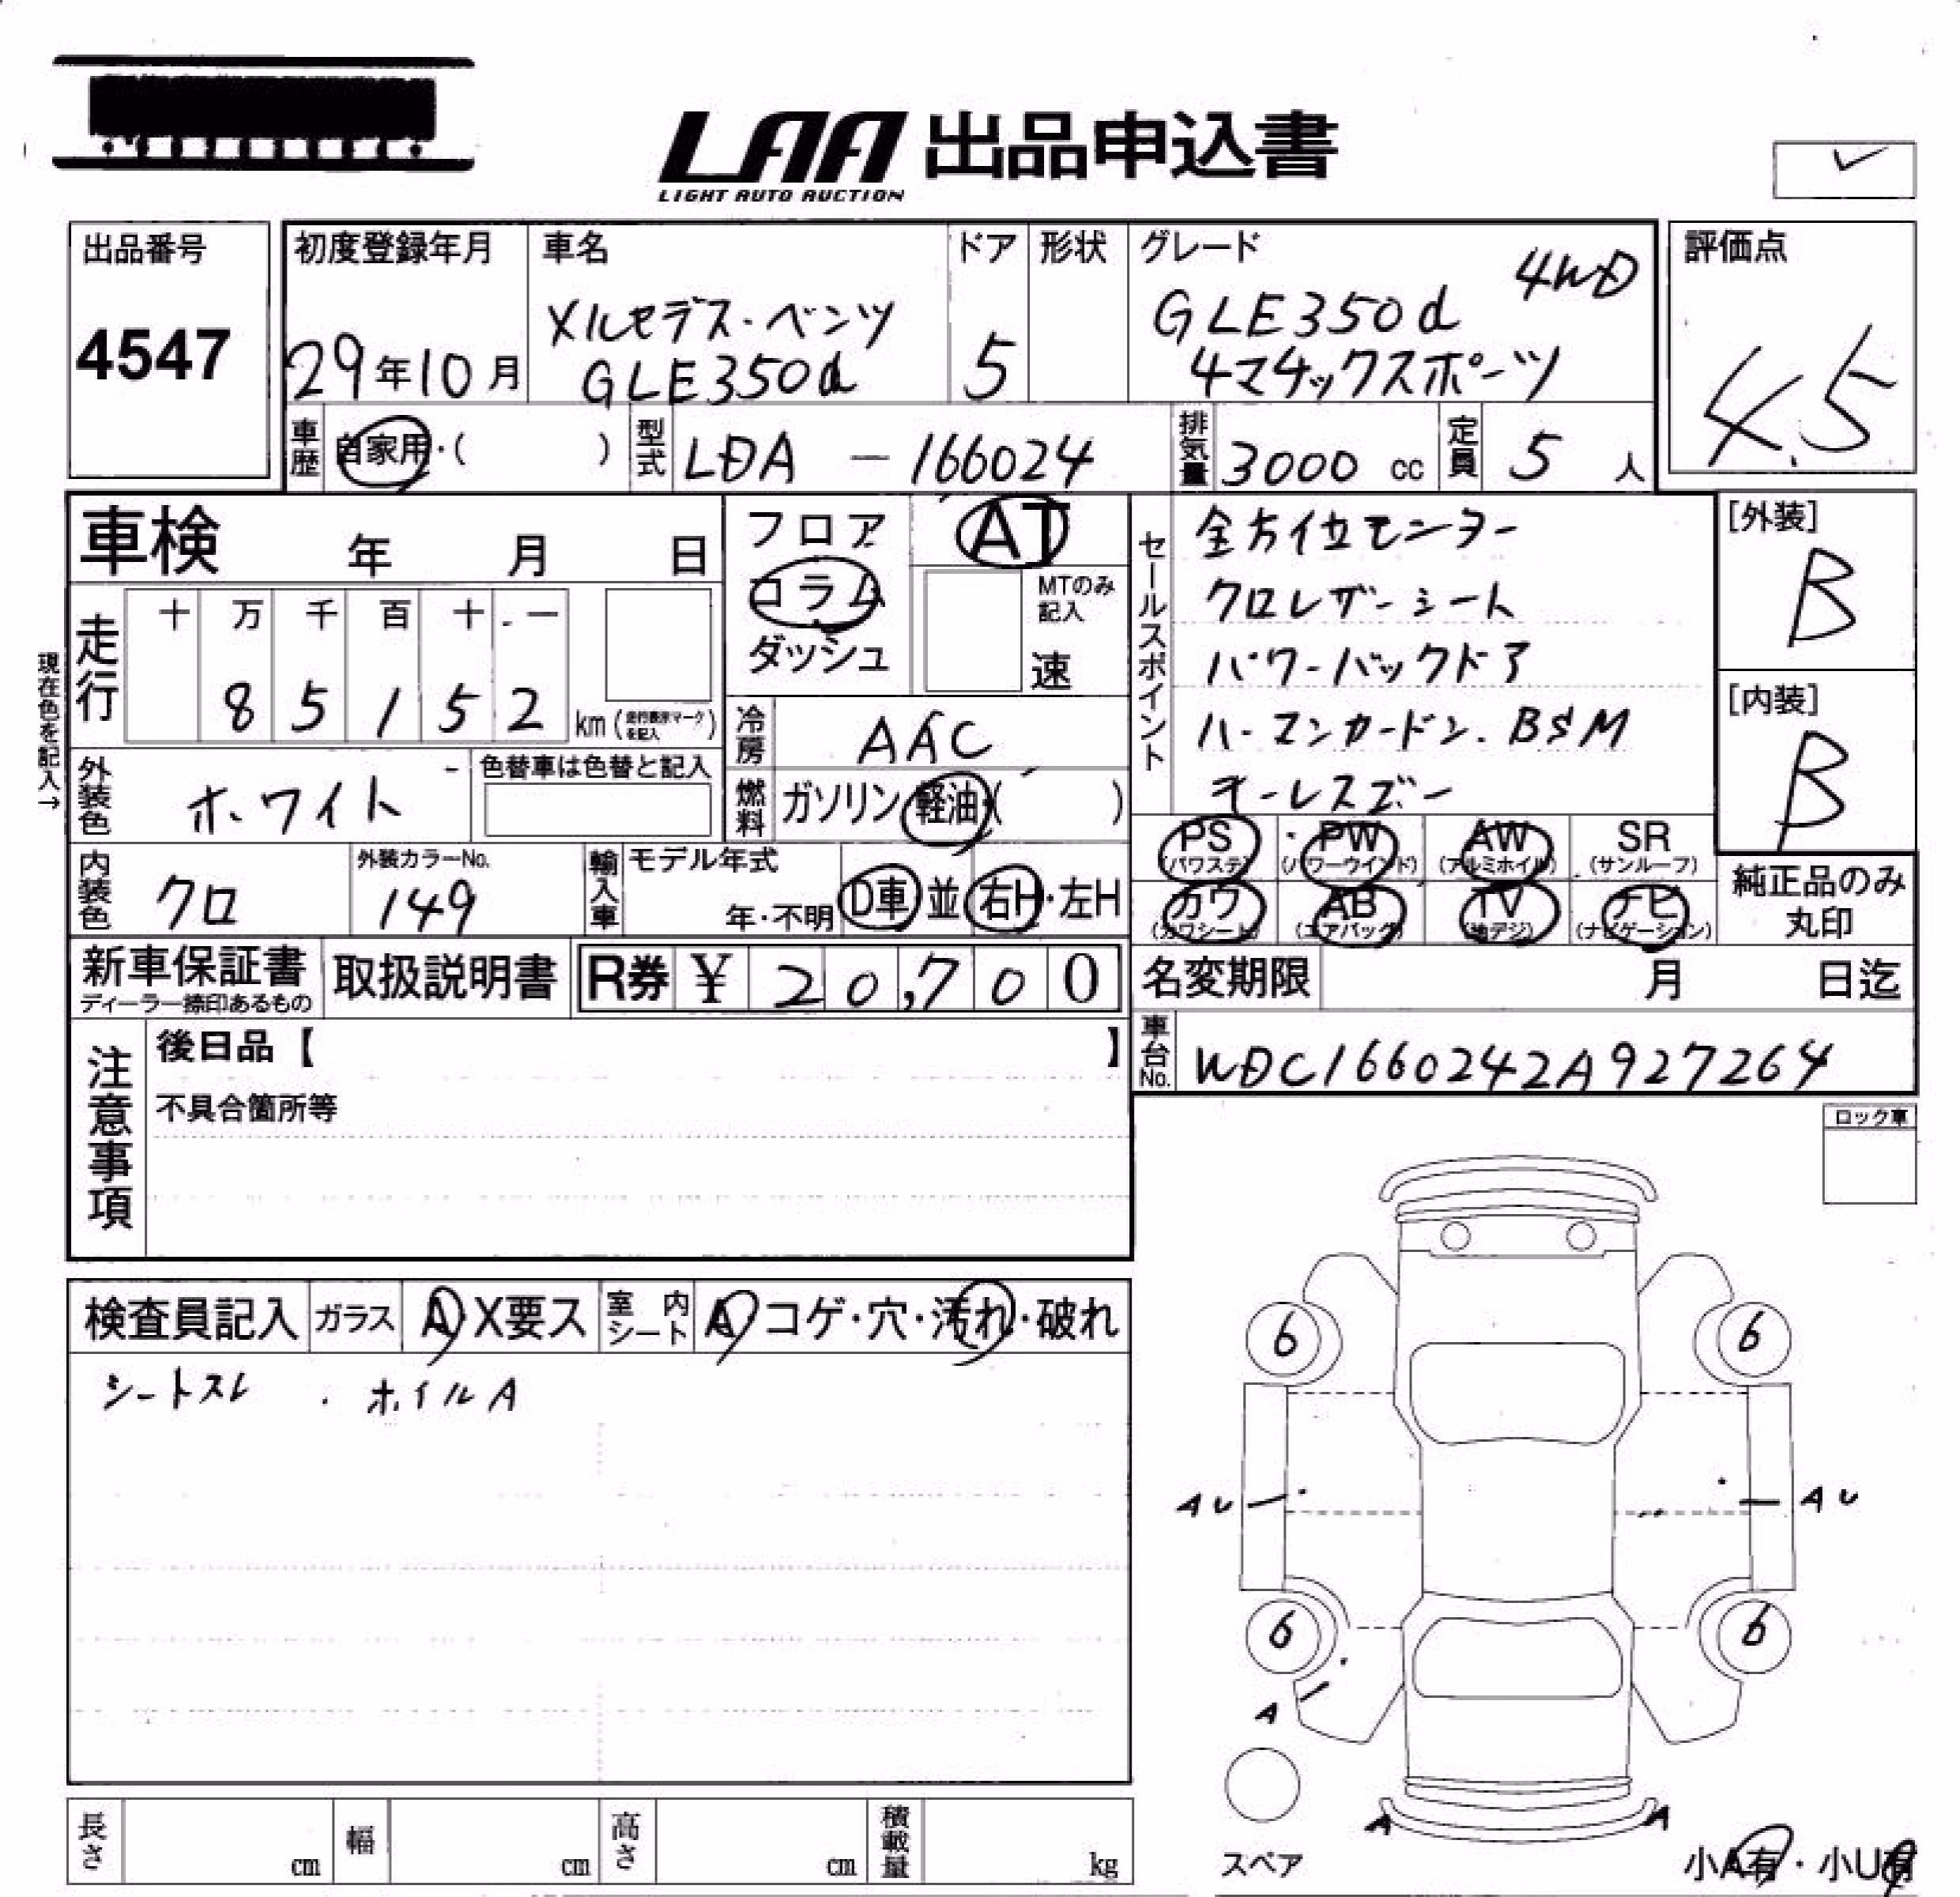 LAA 出品申込書
LIGHT AUTO AUCTION
出品番号
4547
初度登録年月
29年10月
車名
メルセデス・ベンツ
GLE350d
ドア
5
形状
グレード
4WD
GLE350d
4マチックスポーツ
評価点
4.5
車歴
自家用・( )
型式
LDA － 166024
排気量
3000 cc
定員
5 人
車検 年 月 日
走行
十 万 千 百 十 一
8 5 1 5 2 km (走行表示マークを記入)
現在色を記入→
外装色
ホワイト
色替車は色替と記入
内装色
クロ
外装カラーNo.
149
フロア
コラム
ダッシュ
AT
MTのみ
記入
速
冷房
AAC
燃料
ガソリン・軽油・( )
輸入車
モデル年式
年・不明
D車 並
右H・左H
セールスポイント
全方位モニター
クロレザーシート
パワーバックドア
ハーマンカードン. BSM
キーレスゴー
[外装]
B
[内装]
B
PS (パワステ)
PW (パワーウインド)
AW (アルミホイル)
SR (サンルーフ)
カワ (カワシート)
AB (エアバッグ)
TV (地デジ)
ナビ (ナビゲーション)
純正品のみ
丸印
新車保証書
ディーラー捺印あるもの
取扱説明書
R券 ¥ 20,700
名変期限 月 日迄
車台No.
WDC1660242A927264
注意事項
後日品【 】
不具合箇所等
ロック車
検査員記入
ガラス
A・X要ス
室内シート
A・コゲ・穴・汚れ・破れ
シートスレ ・ ホイルA
6 6
AU AU
6 6
A
スペア
A A
小A有・小U有
長さ cm
幅 cm
高さ cm
積載量 kg